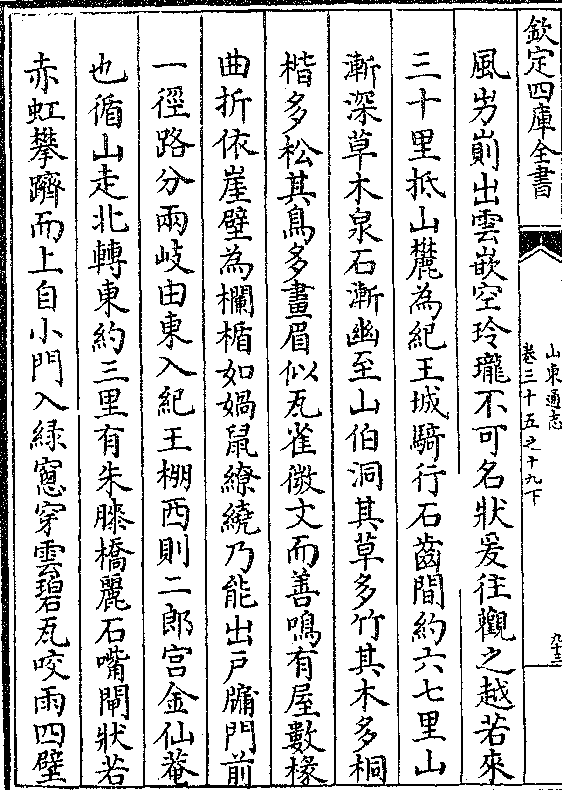 欽定四庫全書
山東通志
卷三十五之十九下
九十三
風岁崱出雲嵌空玲瓏不可名狀爰往觀之越若來
三十里抵山麓為紀王城騎行石齒間約六七里山
漸深草木泉石漸幽至山伯洞其草多竹其木多桐
楷多松其鳥多畫眉似瓦雀微文而善鳴有屋數椽
曲折依崖壁為欄楯如蝸鼠繚繞乃能出戶牖門前
一徑路分兩岐由東入紀王棚西則二郎宮金仙菴
也循山走北轉東約三里有朱膝橋麗石嘴閘狀若
赤虹攀躋而上自小門入綠窻穿雲碧瓦咬雨四壁